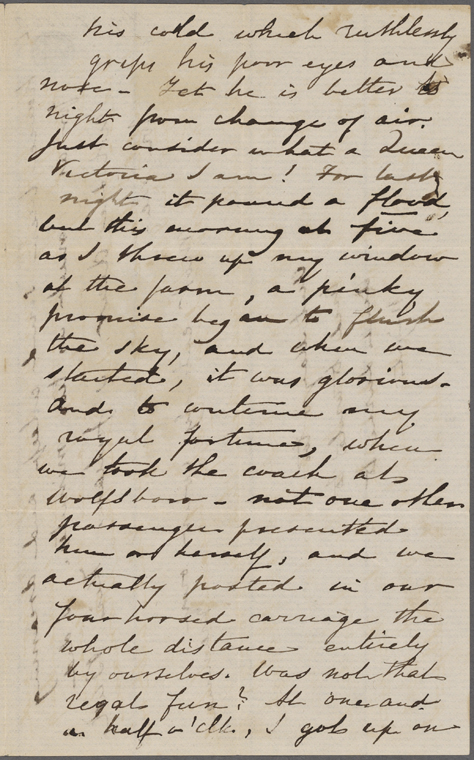 his cold which ruthlessly
grips his poor eyes and
nose - Yet he is better to
night from change of air.
Just consider what a Queen
Victoria I am! For last
night it poured a flood,
but this morning at five
as I threw up my window
at the farm, a pinky
promise began to flush
the sky, and when we
started, it was glorious.
And to continue my
royal fortune, when
we took the coach at
Wolfsboro - not one other
passenger presented
him or herself, and we
actually posted in our
four horsed carriage the
whole distance entirely
by ourselves. Was not that
regal fun? At one and
a half o'clk., I got up on